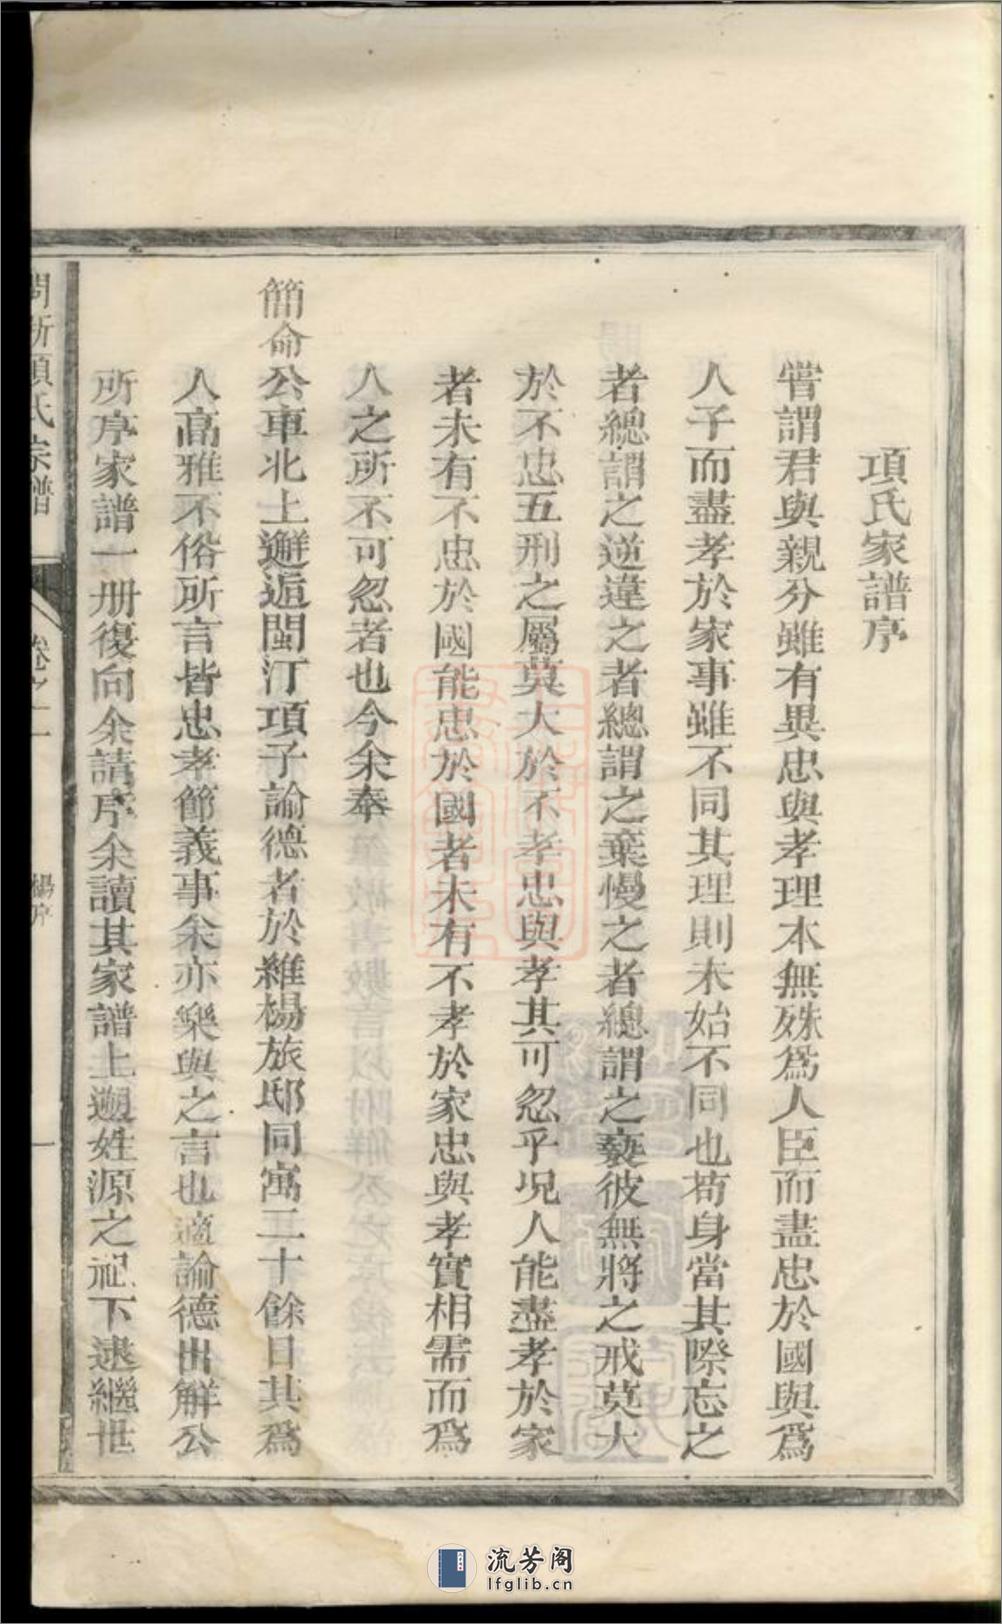 項氏家譜序
嘗謂君與親分雖有異忠與孝理本無殊爲人臣而盡忠於國與爲
人子而盡孝於家事雖不同其理則未始不同也苟身當其際忘之
者總謂之逆違之者總謂之棄慢之者總謂之褻彼無將之戒莫大
於不忠五刑之屬莫大於不孝忠與孝其可忽乎况人能盡孝於家
者未有不忠於國能忠於國者未有不孝於家忠與孝實相需而爲
人之所不可忽者也今余奉
簡命公車北上邂逅閩汀項子諭德者於維楊旅邸同寓二十餘日其爲
人高雅不俗所言皆忠孝節義事余亦樂與之言也適諭德出解公
所序家譜一册復向余請序余讀其家譜上遡姓源之祀下逮繼世
項氏宗譜
卷之一
楊序
一
流芳阁
lfglib.cn